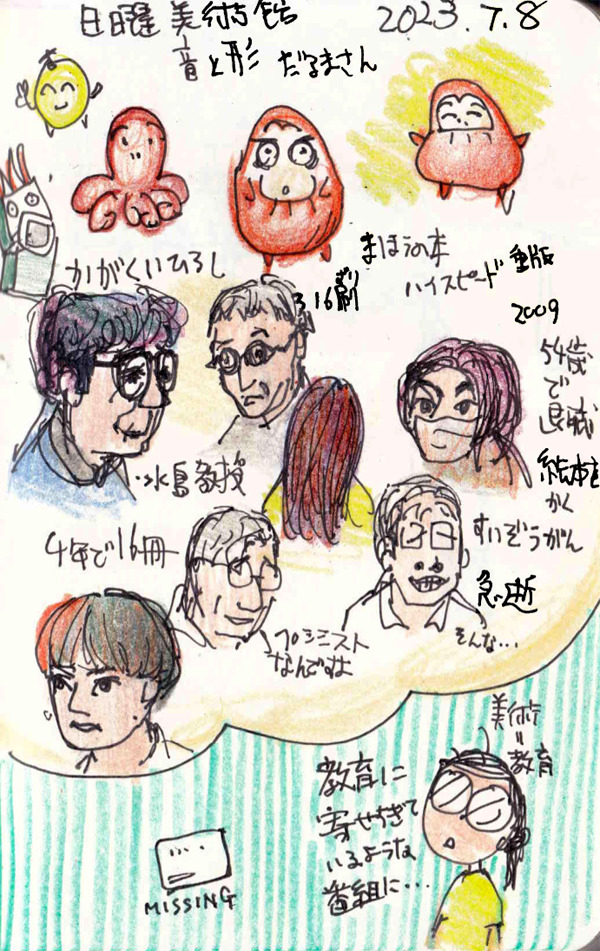 日曜美術館
2023.7.8
音と形 だるまさん
かがくいひろし
まほうの本
ハイスピード重版
316刷
ずり
2009
54歳
で
退職
絵本を
かく
水島教授
4年で16冊
すいぞうがん
急逝
そんな…
ペシミスト
なんですよ
美術
=
教育
教育に
寄せすぎて
いるような
番組に…
MISSING